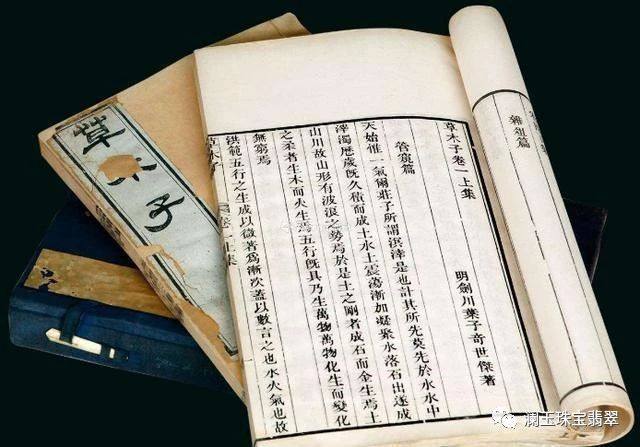 雜俎篇
草木子卷一上集
明劍川葉子奇世傑著
管窺篇
天始惟一氣爾莊子所謂溟涬是也計其所先莫先於水水中
滓濁歷歲旣久積而成土水土震蕩漸加凝聚水落石出遂成
山川故山形有波浪之勢焉於是土之剛者成石而金生焉土
之柔者生木而火生焉五行旣具乃生萬物萬物化生而變化
無窮焉
洪範五行之生成以微著爲漸次蓋以數言之也水火氣也故
草木子 卷一上集
草木子
澜玉珠宝翡翠